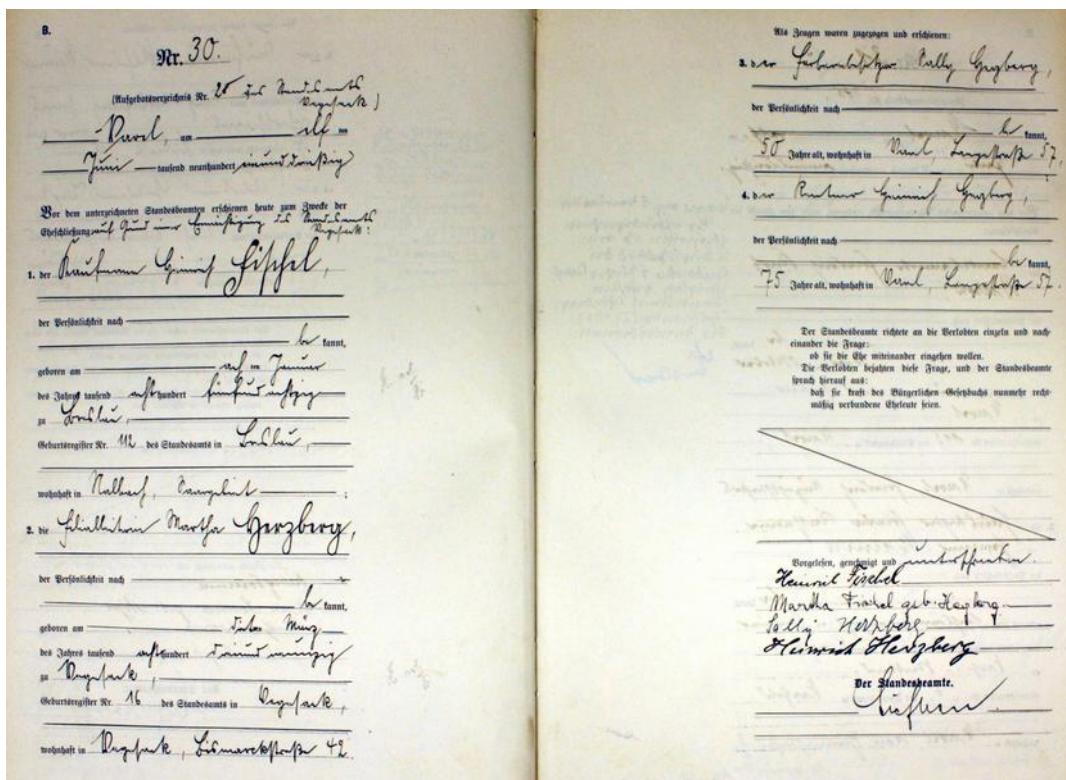 B.
Nr. 30.
(Aufgebotsverzeichnis Nr. 28 des Standesamts
Vegesack)
Varel, am elf ten
Juni tausend neunhundert einunddreißig
Vor dem unterzeichneten Standesbeamten erschienen heute zum Zwecke der
Eheschließung auf Grund einer Ermächtigung des Standesamts
Vegesack:
1. der Kaufmann Heinrich Fischel,
der Persönlichkeit nach
be kannt,
geboren am acht en Januar
des Jahres tausend acht hundert fünfundachtzig
zu Breslau,
Geburtsregister Nr. 112 des Standesamts in Breslau,
wohnhaft in Nalbach, Saargebiet ;
2. die Filialleiterin Martha Herzberg,
der Persönlichkeit nach
be kannt,
geboren am dritten März
des Jahres tausend acht hundert dreiundneunzig
zu Vegesack,
Geburtsregister Nr. 16 des Standesamts in Vegesack,
wohnhaft in Vegesack, Bismarckstraße 42.
Als Zeugen waren zugezogen und erschienen:
3. der Färbereibesitzer Sally Herzberg,
der Persönlichkeit nach
be kannt,
50 Jahre alt, wohnhaft in Varel, Langestraße 57,
4. der Rentner Heinrich Herzberg,
der Persönlichkeit nach
be kannt,
75 Jahre alt, wohnhaft in Varel, Langestraße 57.
Der Standesbeamte richtete an die Verlobten einzeln und nach-
einander die Frage:
ob sie die Ehe miteinander eingehen wollen.
Die Verlobten bejahten diese Frage, und der Standesbeamte
sprach hierauf aus:
daß sie kraft des Bürgerlichen Gesetzbuchs nunmehr recht-
mäßig verbundene Eheleute seien.
Vorgelesen, genehmigt und unterschrieben.
Heinrich Fischel
Martha Fischel geb. Herzberg
Sally Herzberg
Heinrich Herzberg
Der Standesbeamte.